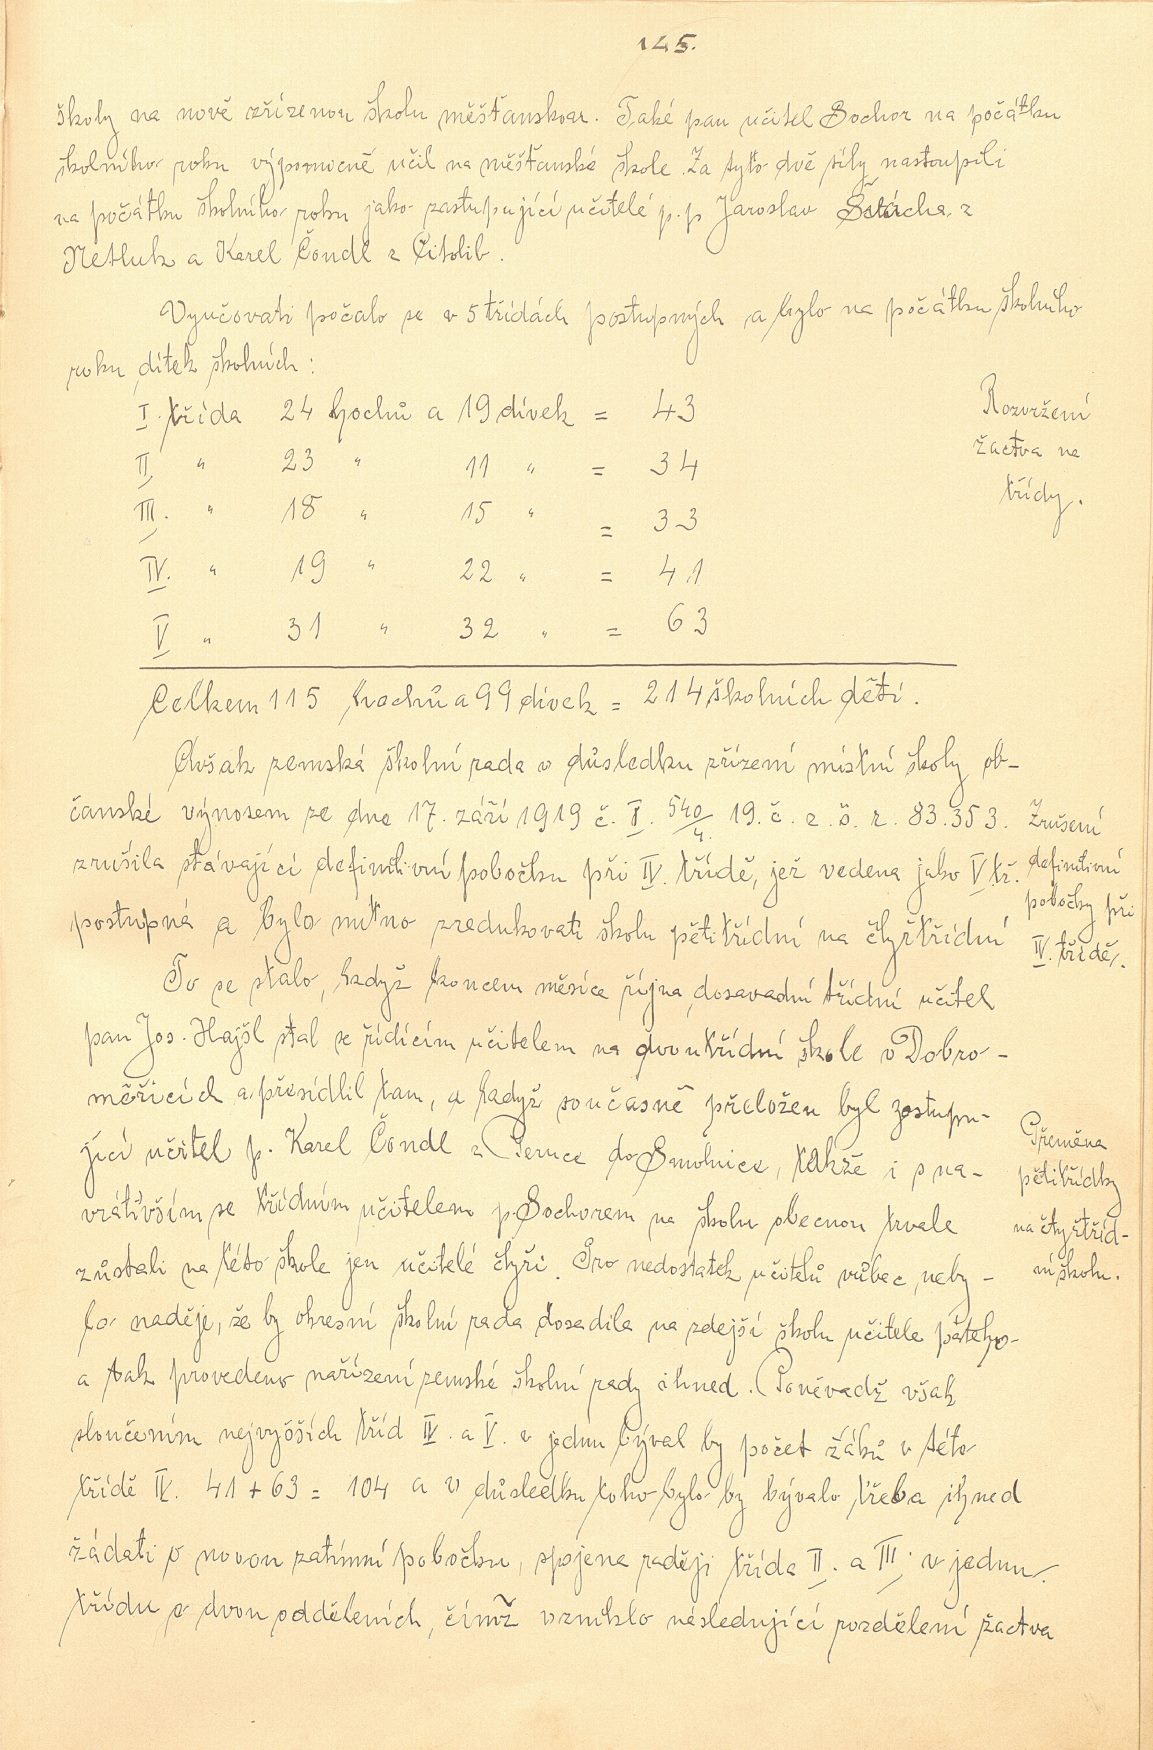 145.
školy na nově zřízenou školu měšťanskou. Také pan učitel Sochor na počátku
školního roku výpomocně učil na měšťanské škole. Za tyto dvě síly nastoupili
na počátku školního roku jako zastupující učitelé p.p Jaroslav z
Netluk a Karel Čondl z Citolib.
Vyučovati počalo se v 5 třídách postupných a bylo na počátku školního
roku dítek školních:
I. třída 24 hochů a 19 dívek = 43
II. " 23 " 11 " = 34
III. " 18 " 15 " = 33
IV. " 19 " 22 " = 41
V " 31 " 32 " = 63
Rozvržení
žactva na
třídy.
Celkem 115 hochů a 99 dívek = 214 školních dětí.
Avšak zemská školní rada v důsledku zřízení místní školy ob-
čanské výnosem ze dne 17. září 1919 č. II. 540/4. 19. č. z. š. r. 83.353.
zrušila stávající definitivní pobočku při IV. třídě, jež vedena jako V tř.
postupná a bylo nutno zredukovati školu pětitřídní na čtyřtřídní
Zrušení
definitivní
pobočky při
IV. třídě.
To se stalo, když koncem měsíce října dosavadní třídní učitel
pan Jos. Hajšl stal se řídícím učitelem na dvoutřídní škole v Dobro-
měřicích a přesídlil tam, a když současně přeložen byl zastupu-
jící učitel p. Karel Čondl z Peruce do Smolnice, takže i s na-
vrátivším se třídním učitelem p. Sochorem na školu obecnou trvale
zůstali na této škole jen učitelé čtyři. Pro nedostatek učitelů vůbec neby-
lo naděje, že by okresní školní rada dosadila na zdejší školu učitele pátého
a tak provedeno nařízení zemské školní rady ihned. Poněvadž však
sloučením nejvyšších tříd IV. a V. v jednu býval by počet žáků v této
třídě IV. 41 + 63 = 104 a v důsledku toho bylo by bývalo třeba ihned
žádati o novou zatímní pobočku, spojena raději třída II. a III. v jednu
třídu o dvou odděleních, čímž vzniklo následující rozdělení žactva
Přeměna
pětitřídky
na čtyřtříd-
ní školu.